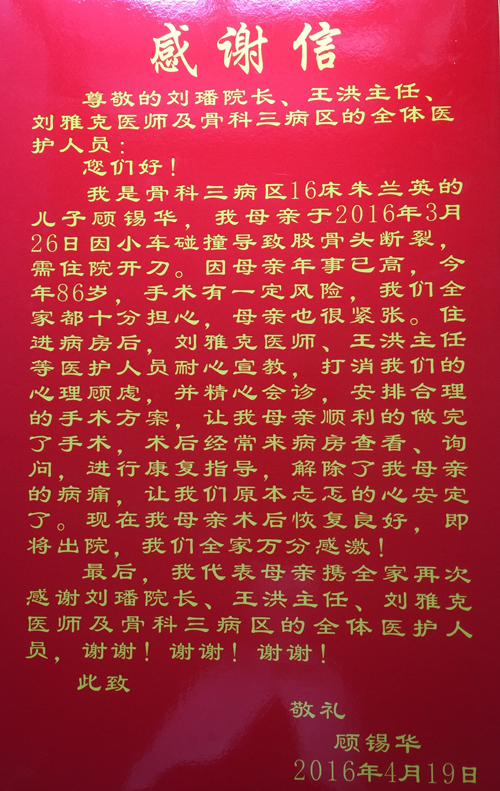 感谢信
尊敬的刘璠院长、王洪主任、
刘雅克医师及骨科三病区的全体医
护人员：
您们好！
我是骨科三病区16床朱兰英的
儿子顾锡华，我母亲于2016年3月
26日因小车碰撞导致股骨头断裂，
需住院开刀。因母亲年事已高，今
年86岁，手术有一定风险，我们全
家都十分担心，母亲也很紧张。住
进病房后，刘雅克医师、王洪主任
等医护人员耐心宣教，打消我们的
心理顾虑，并精心会诊，安排合理
的手术方案，让我母亲顺利的做完
了手术，术后经常来病房查看、询
问，进行康复指导，解除了我母亲
的病痛，让我们原本忐忑的心安定
了。现在我母亲术后恢复良好，即
将出院，我们全家万分感激！
最后，我代表母亲携全家再次
感谢刘璠院长、王洪主任、刘雅克
医师及骨科三病区的全体医护人
员，谢谢！谢谢！谢谢！
此致
敬礼
顾锡华
2016年4月19日